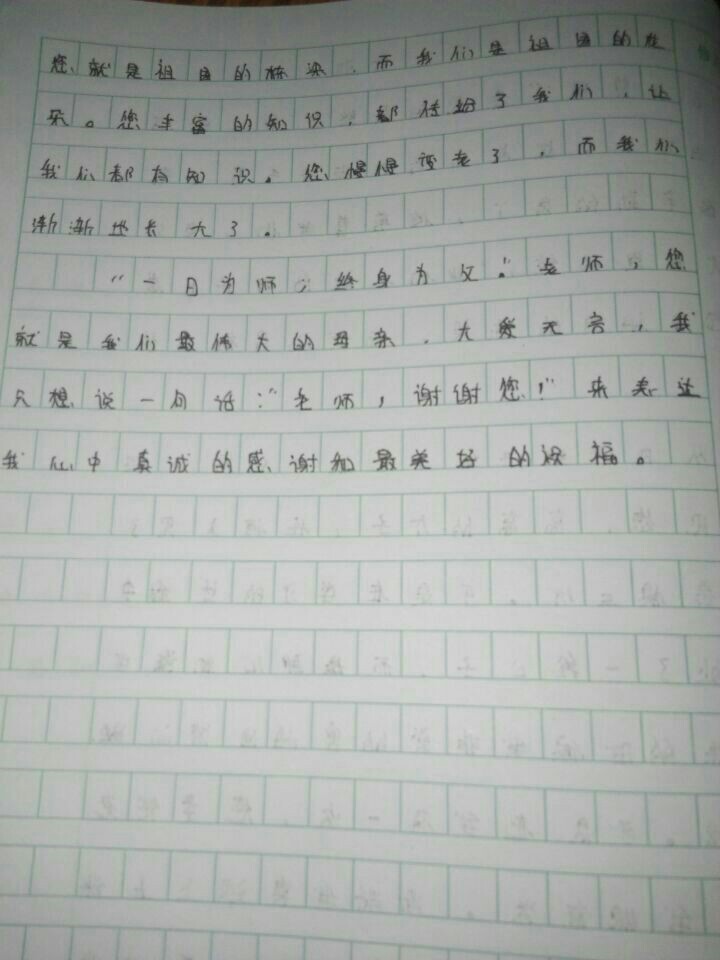 您就是祖国的栋梁，而我们是祖国的花
朵。您丰富的知识，都传给了我们，让
我们都有知识。您慢慢变老了，而我们
渐渐地长大了。
“一日为师，终身为父。”老师，您
就是我们最伟大的母亲，大爱无言，我
只想说一句话：“老师，谢谢您！”来表达
我心中真诚的感谢和最美好的祝福。